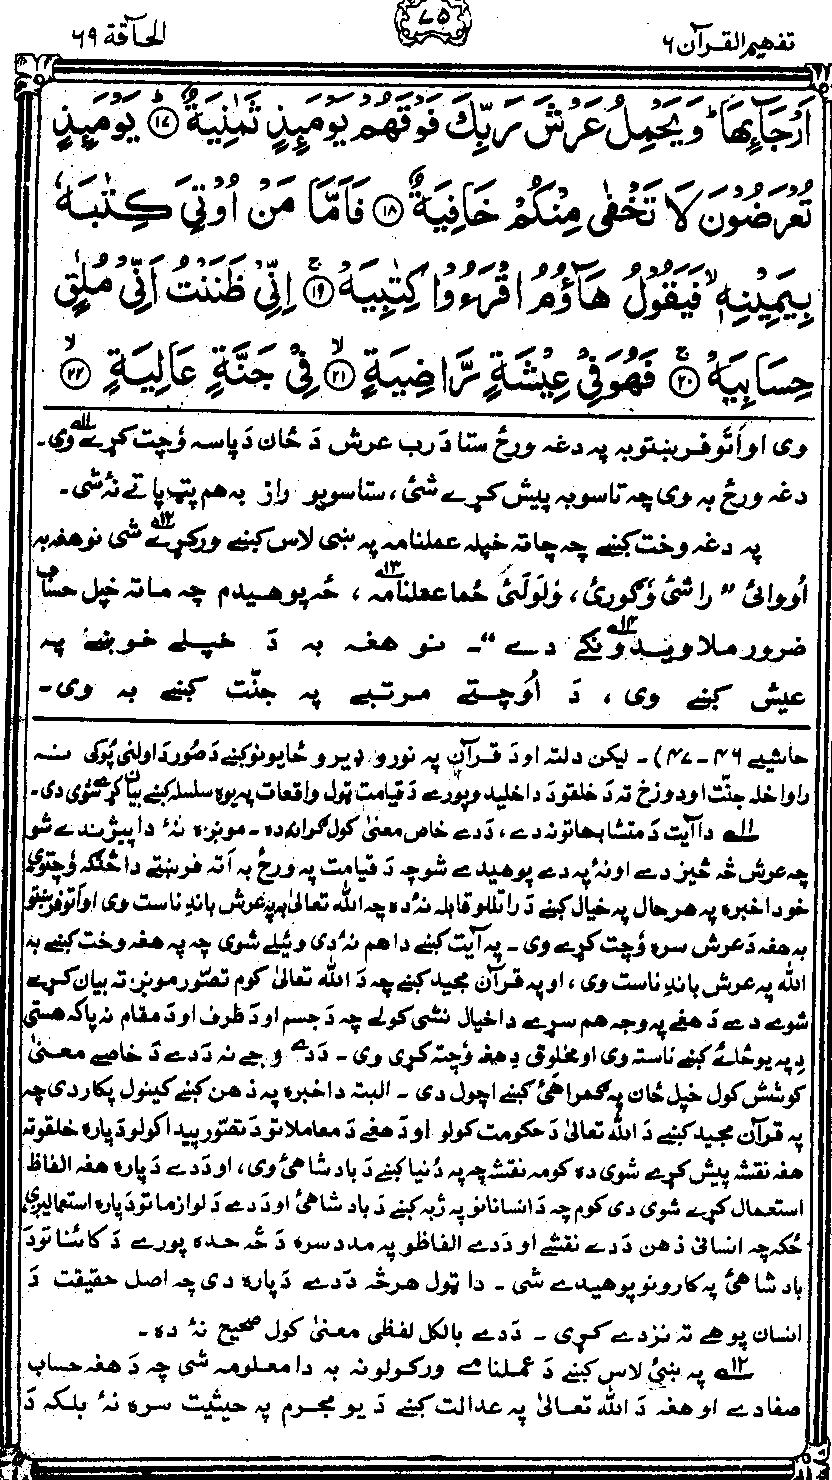 تفهيم القرآن ۶
۷۵
الحآقة ۶۹
اَرْجَآئِهَا ؕ وَيَحْمِلُ عَرْشَ رَبِّكَ فَوْقَهُمْ يَوْمَئِذٍ ثَمٰنِيَةٌ ؕ ﴿۱۷﴾ يَوْمَئِذٍ
تُعْرَضُوْنَ لَا تَخْفٰى مِنْكُمْ خَافِيَةٌ ﴿۱۸﴾ فَاَمَّا مَنْ اُوْتِيَ كِتٰبَهٗ
بِيَمِيْنِهٖ ۙ فَيَقُوْلُ هَآؤُمُ اقْرَءُوْا كِتٰبِيَهْ ۚ ﴿۱۹﴾ اِنِّيْ ظَنَنْتُ اَنِّيْ مُلٰقٍ
حِسَابِيَهْ ۚ ﴿۲۰﴾ فَهُوَ فِيْ عِيْشَةٍ رَّاضِيَةٍ ۙ ﴿۲۱﴾ فِيْ جَنَّةٍ عَالِيَةٍ ۙ ﴿۲۲﴾
وی او اَتو فرښتو به په دغه ورځ ستا دَ رب عرش دَ ځان دَ پاسه وُچت کړے وی۔
دغه ورځ به وی چه تاسو به پیش کړے شئ، ستاسو یو راز به هم پټ پاتے نهٔ شی۔
په دغه وخت کښے چه چاته خپله عملنامه په ښی لاس کښے ورکړے شی نو هغه به
اُووائی " راشئ وُګورئ، وُلولئ ځما عملنامه، ځه پوهیدم چه ما ته خپل حساب
ضرور ملاویدونکے دے "۔ نو هغه به دَ خپلے خوښے په
عیش کښے وی، دَ اُوچتے مرتبے په جنّت کښے به وی۔
حاشیے ۴۶-۴۷)۔ لیکن دلته او دَ قرآن په نورو ډیرو ځایونو کښے دَ صُور دَ اولنی پُوکی نه
راواخله جنّت او دوزخ ته دَ خلقو دَ داخلیدو پورے دَ قیامت ټول واقعات په یوه سلسله کښے بیان کړے شوی دی۔
۱۱ دا آیت دَ متشابهاتو نه دے، دَ دے خاص معنیٰ کول ګران ده۔ مونږه نهٔ دا پیژندے شو
چه عرش څه څیز دے او نهٔ په دے پوهیدے شو چه دَ قیامت په ورځ به اَته فرښتے دا څنګه وُچتوی
خو دا خبره په هر حال په خیال کښے دَ راتللو قابله نهٔ ده چه الله تعالیٰ به په عرش باندے ناست وی او اَتو فرښتو
به هغه دَ عرش سره وُچت کړے وی۔ په آیت کښے دا هم نهٔ دی وئیلے شوی چه په هغه وخت کښے به
الله په عرش باندے ناست وی، او په قرآن مجید کښے چه دَ الله تعالیٰ کوم تصوّر مونږ ته بیان کړے
شوے دے دَ هغے په وجه هم سړے دا خیال نشی کولے چه دَ جسم او دَ ظرف او دَ مقام نه پاکه هستی
دِ په یو ځائے کښے ناسته وی او مخلوق دِ هغه وُچته کړی وی۔ دَ دے وجے نه دَ دے دَ خاصے معنیٰ
کوشش کول خپل ځان په ګمراهئ کښے اچول دی۔ البته دا خبره په ذهن کښے کینول پکار دی چه
په قرآن مجید کښے دَ الله تعالیٰ دَ حکومت کولو او دَ هغے دَ معاملاتو دَ تصوّر پیدا کولو دَپاره خلقو ته
هغه نقشه پیش کړے شوی ده کومه نقشه چه په دُنیا کښے دَ بادشاهئ وی، او دَ دے دَپاره هغه الفاظ
استعمال کړے شوی دی کوم چه دَ انسانانو په ژبه کښے دَ بادشاهئ او دَ دے دَ لوازماتو دَپاره استعمالیږی،
ځکه چه انسانی ذهن دَ دے نقشے او دَ دے الفاظو په مدد سره دَ څه حده پورے دَ کائناتو دَ
بادشاهئ په کارونو پوهیدے شی۔ دا ټول هر څه دَ دے دَپاره دی چه اصل حقیقت دَ
انسان پوهے ته نزدے کړی۔ دَ دے بالکل لفظی معنیٰ کول صحیح نهٔ ده۔
۱۲ په ښی لاس کښے دَ عملنامے ورکولو نه به دا معلومه شی چه دَ هغه حساب
صفا دے او هغه دَ الله تعالیٰ په عدالت کښے دَ یو مجرم په حیثیت سره نهٔ بلکه دَ